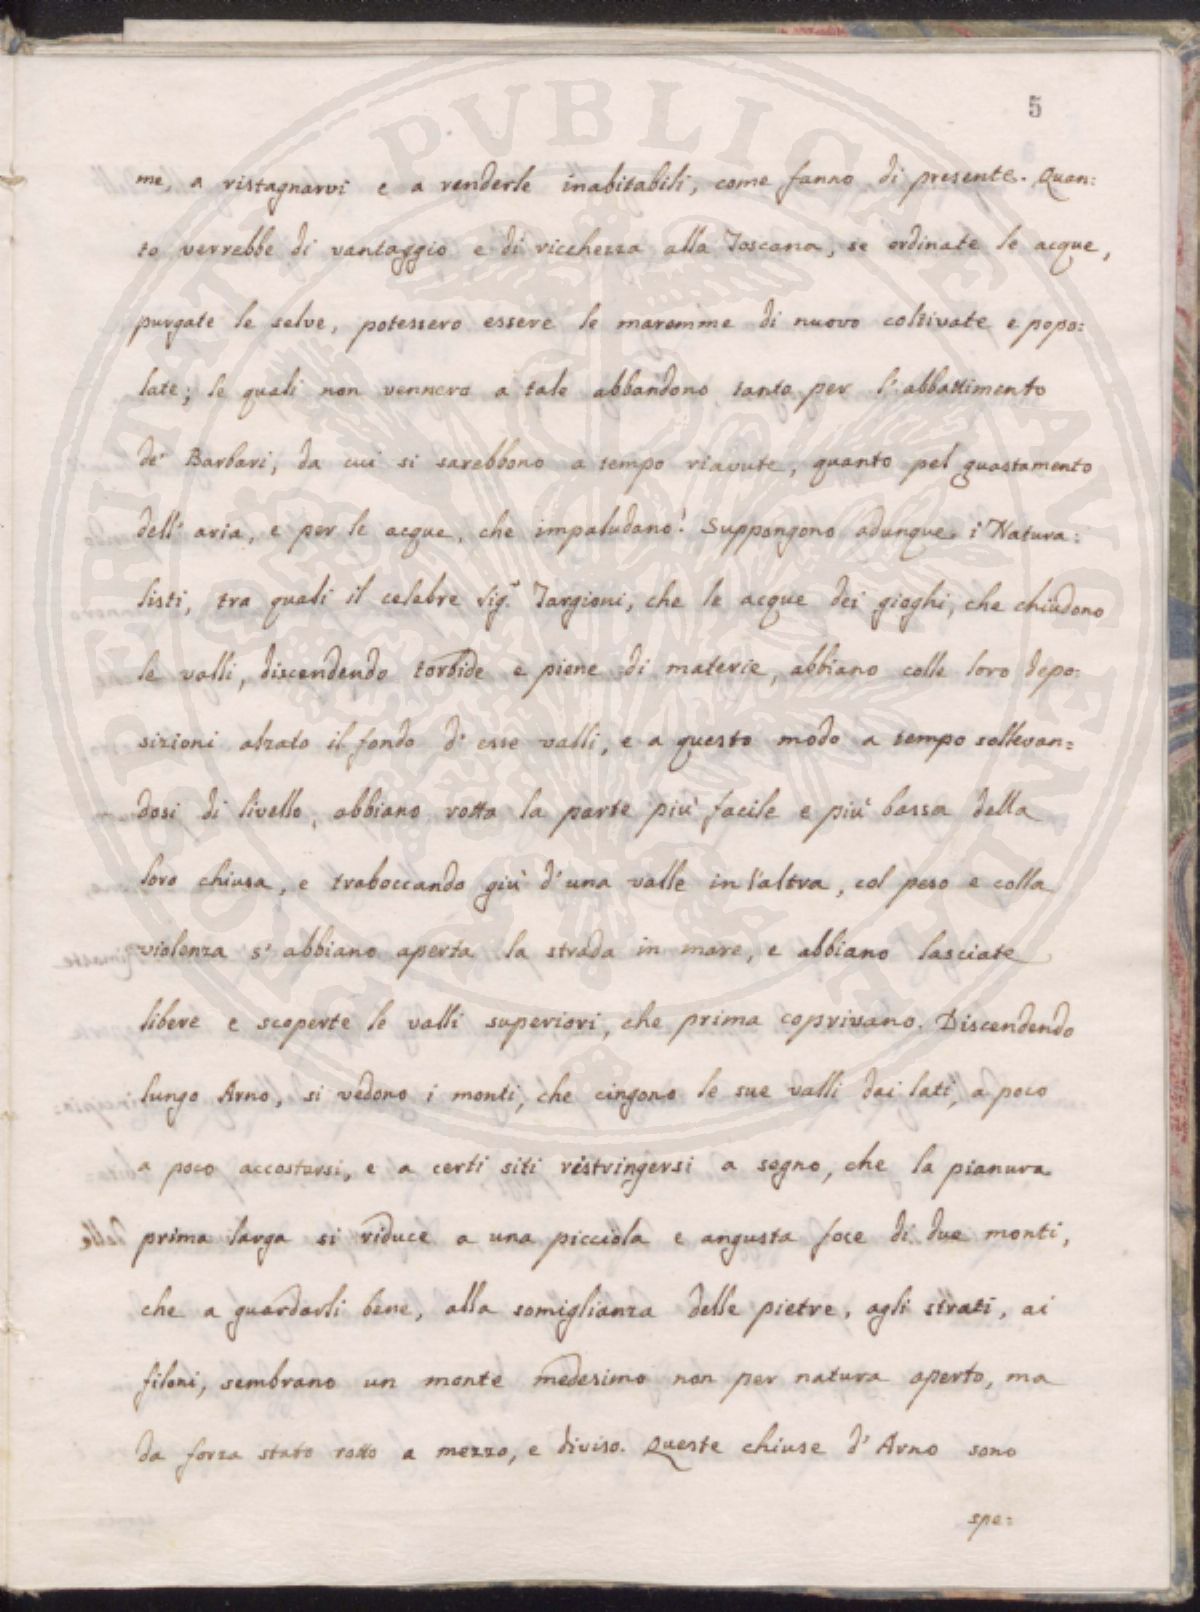 5
me, a ristagnarvi e a renderle inabitabili, come fanno di presente. Quan:
to verrebbe di vantaggio e di ricchezza alla Toscana, se ordinate le acque,
purgate le selve, potessero essere le maremme di nuovo coltivate e popo:
late; le quali non vennero a tale abbandono tanto per l'abbattimento
de' Barbari, da cui si sarebbono a tempo riavute, quanto pel guastamento
dell' aria, e per le acque, che impaludano! Suppongono adunque i Natura:
listi, tra quali il celebre Sig.r Targioni, che le acque dei gioghi, che chiudono
le valli, discendendo torbide e piene di materie, abbiano colle loro depo:
sizioni alzato il fondo d' esse valli, e a questo modo a tempo sollevan=
dosi di livello, abbiano rotta la parte più facile e più bassa della
loro chiusa, e traboccando giù d' una valle in l'altra, col peso e colla
violenza s' abbiano aperta la strada in mare, e abbiano lasciate
libere e scoperte le valli superiori, che prima coprivano. Discendendo
lungo Arno, si vedono i monti, che cingono le sue valli dai lati, a poco
a poco accostarsi, e a certi siti ristringersi a segno, che la pianura
prima larga si riduce a una picciola e angusta foce di due monti,
che a guardarli bene, alla somiglianza delle pietre, agli strati, ai
filoni, sembrano un monte medesimo non per natura aperto, ma
da forza stato rotto a mezzo, e diviso. Queste chiuse d' Arno sono
spe: